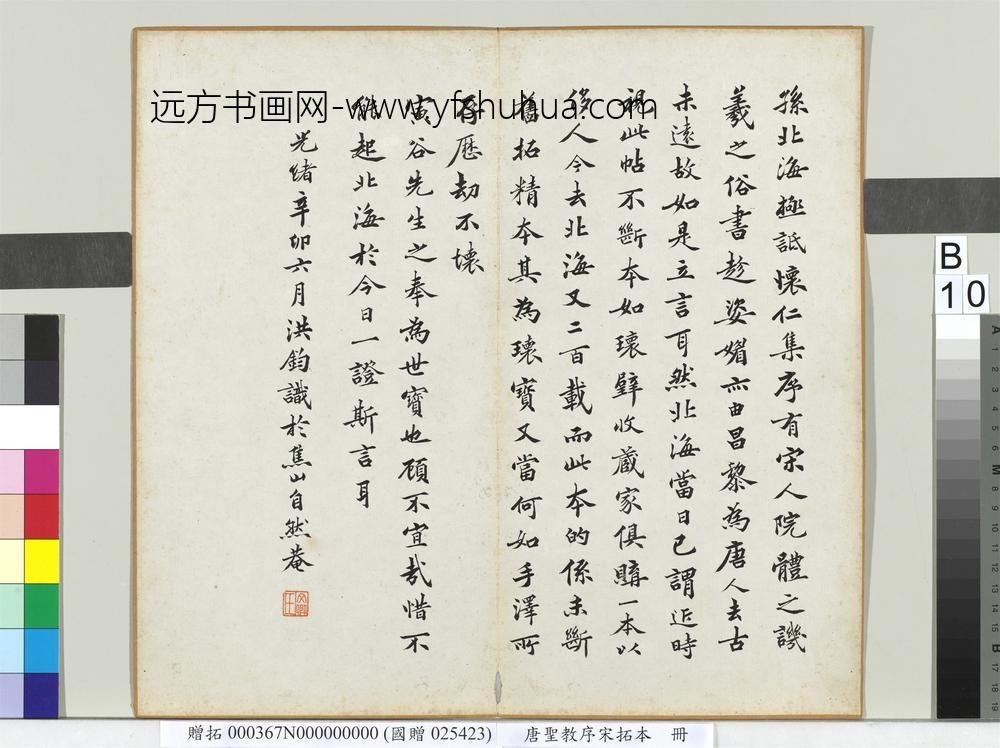 远方书画网-www.yfshuhua.com
孫北海極詆懷仁集序有宋人院體之譏
羲之俗書趁姿媚亦由昌黎為唐人去古
未遠故如是立言耳然北海當日已謂近時
視此帖不斷本如瓌璧收藏家俱一本以
侈人今去北海又二百載而此本的係未斷
舊拓精本其為瓌寶又當何如手澤所
存歷劫不壞
寅谷先生之奉為世寶也顧不宜哉惜不
能起北海於今日一證斯言耳
光緒辛卯六月洪鈞識於焦山自然菴
B
10
贈拓 000367N000000000 (國贈 025423) 唐聖教序宋拓本 冊